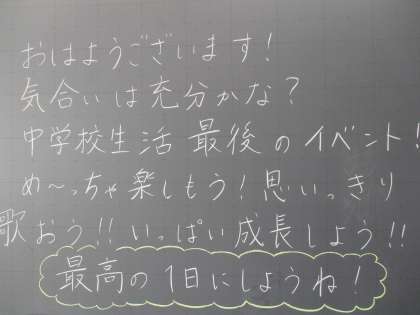 おはようございます!
気合いは充分かな?
中学校生活 最後のイベント!
め〜っちゃ楽しもう!思いっきり
歌おう!!いっぱい成長しよう!!
最高の1日にしようね!